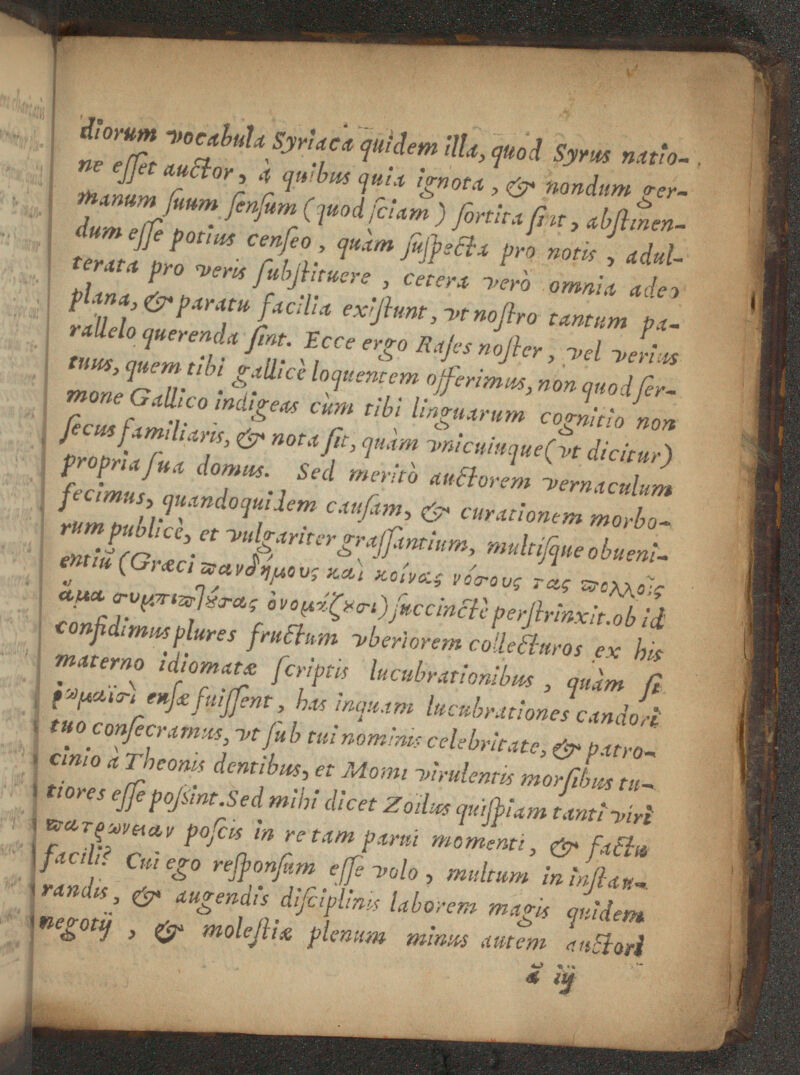 diorum vocabula Syriaca quidem illa, quod Syrus natio-
ne eſſet auctor, à quibus quia ignota, & nondum ger-
manum ſuum ſenſum (quod ſciam) ſortita ſint, abſtinen-
dum eſſe potius cenſeo, quàm ſuſpecta pro notis, adul-
terata pro veris ſubſtituere, cetera verò omnia adeò
plana, & paratu facilia exiſtunt, vt noſtro tantum pa-
rallelo querenda ſint. Ecce ergo Raſes noſter, vel verius
tuus, quem tibi gallicè loquentem offerimus, non quod ſer-
mone Gallico indigeas cùm tibi linguarum cognitio non
ſecus familiaris, & nota ſit, quàm vnicuiuque(vt dicitur)
propria ſua domus. Sed meritò auctorem vernaculum
fecimus, quandoquidem cauſam, & curationem morbo-
rum publicè, et vulgariter graſſantium, multiſque obueni-
entiũ (Græci πανδήμους καὶ κοίνας νόσους τὰς πολλοῖς
ἅμα συμπιπ]έσας ὀνομάζȣσι) ſuccinctè perſtrinxit.ob id
confidimus plures fructum vberiorem collecturos ex his
materno idiomate ſcriptis lucubrationibus, quàm ſi
ῥωμαϊσὶ enſæ fuiſſent, has inquam lucubrationes candori
tuo conſecramus, vt ſub tui nominis celebritate, & patro-
cinio à Theonis dentibus, et Momi virulentis morſibus tu-
tiores eſſe poſsint. Sed mihi dicet Zoilus quiſpiam tanti viri
πατρωνειαν poſcis in re tam parui momenti, & factu
facili? Cui ego reſponſum eſſe volo, multum in inſtau-
randis, & augendis diſciplinis laborem magis quidem
negotij, & moleſtiæ plenum minus autem auctori
ã iij